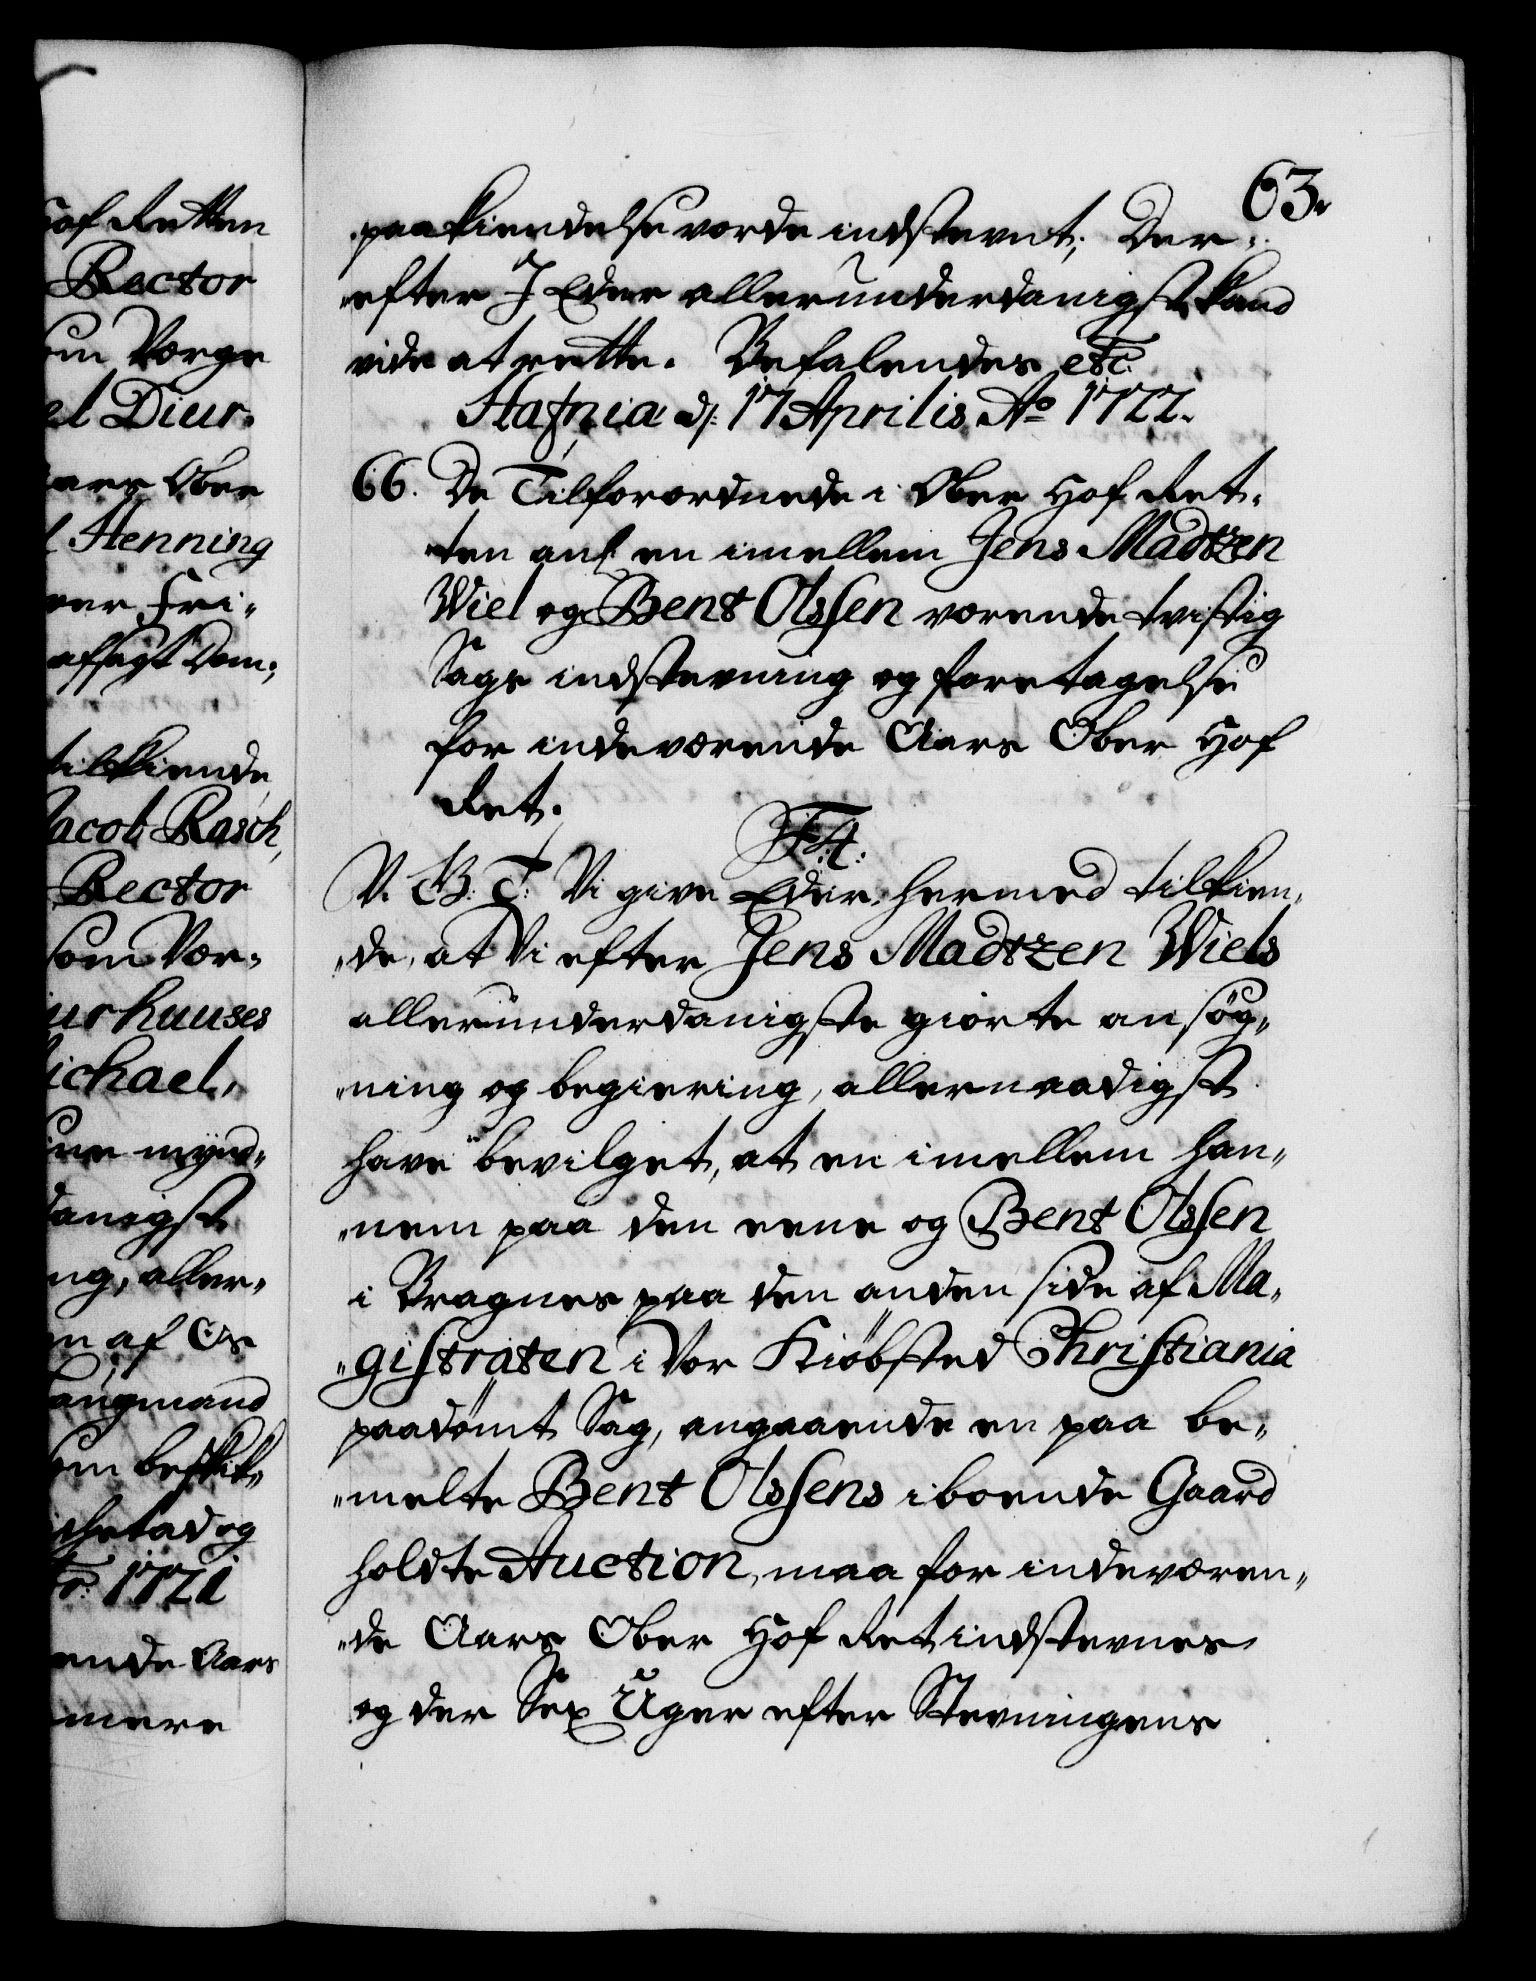 63.
paakiendelse vorde indstevnt; Der-
efter I Eder allerunderdanigst kand
vide at rette. Befalendes etc.
Hafnia d: 17 Aprilis Ao 1722.
66. De Tilforordnede i Ober Hof Ret-
ten anl: en imellem Jens Madtzen
Wiel og Bent Olssen værende tvistig
Sags indstevning og foretagelse
for indeværende Aars Ober Hof
Ret.
F. 4.
V. G. T. Vi give Eder hermed tilkien-
de, at Vi efter Jens Madtzen Wiels
allerunderdanigste giorte ansøg-
ning og begiering, allernaadigst
have bevilget, at en imellem han-
nem paa den eene og Bent Olssen
i Bragnes paa den anden side af Ma-
gistraten i Vor Kiøbsted Christiania
paadømt Sag, angaaende en paa be-
melte Bent Olssens iboende Gaard
holdte Auction, maa for indeværen-
de Aars Ober Hof Ret indstevnes
og der Sex Uger efter Stevningens
Hof Retten
Rector
som Værge
el Diur-
Aars Ober
Henning
ver Fri-
afsagt Dom,
tilkiende
Jacob Rasch,
Rector
som Vær-
iurhuuses
Michael,
sine mynd-
danigst
ng, aller-
n af Os
Laugmand
som beskik-
og
1721
ende Aars
mere